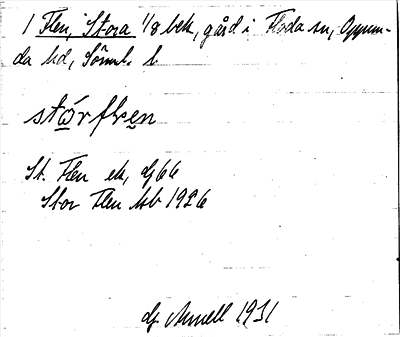 1 Flen, Stora 1/8 bek, gård i Floda sn, Oppun-
da hd, Sörml. l
stórflen
St. Flen ek, Gj66
Stor Flen kb 1926
G. Annell 1931